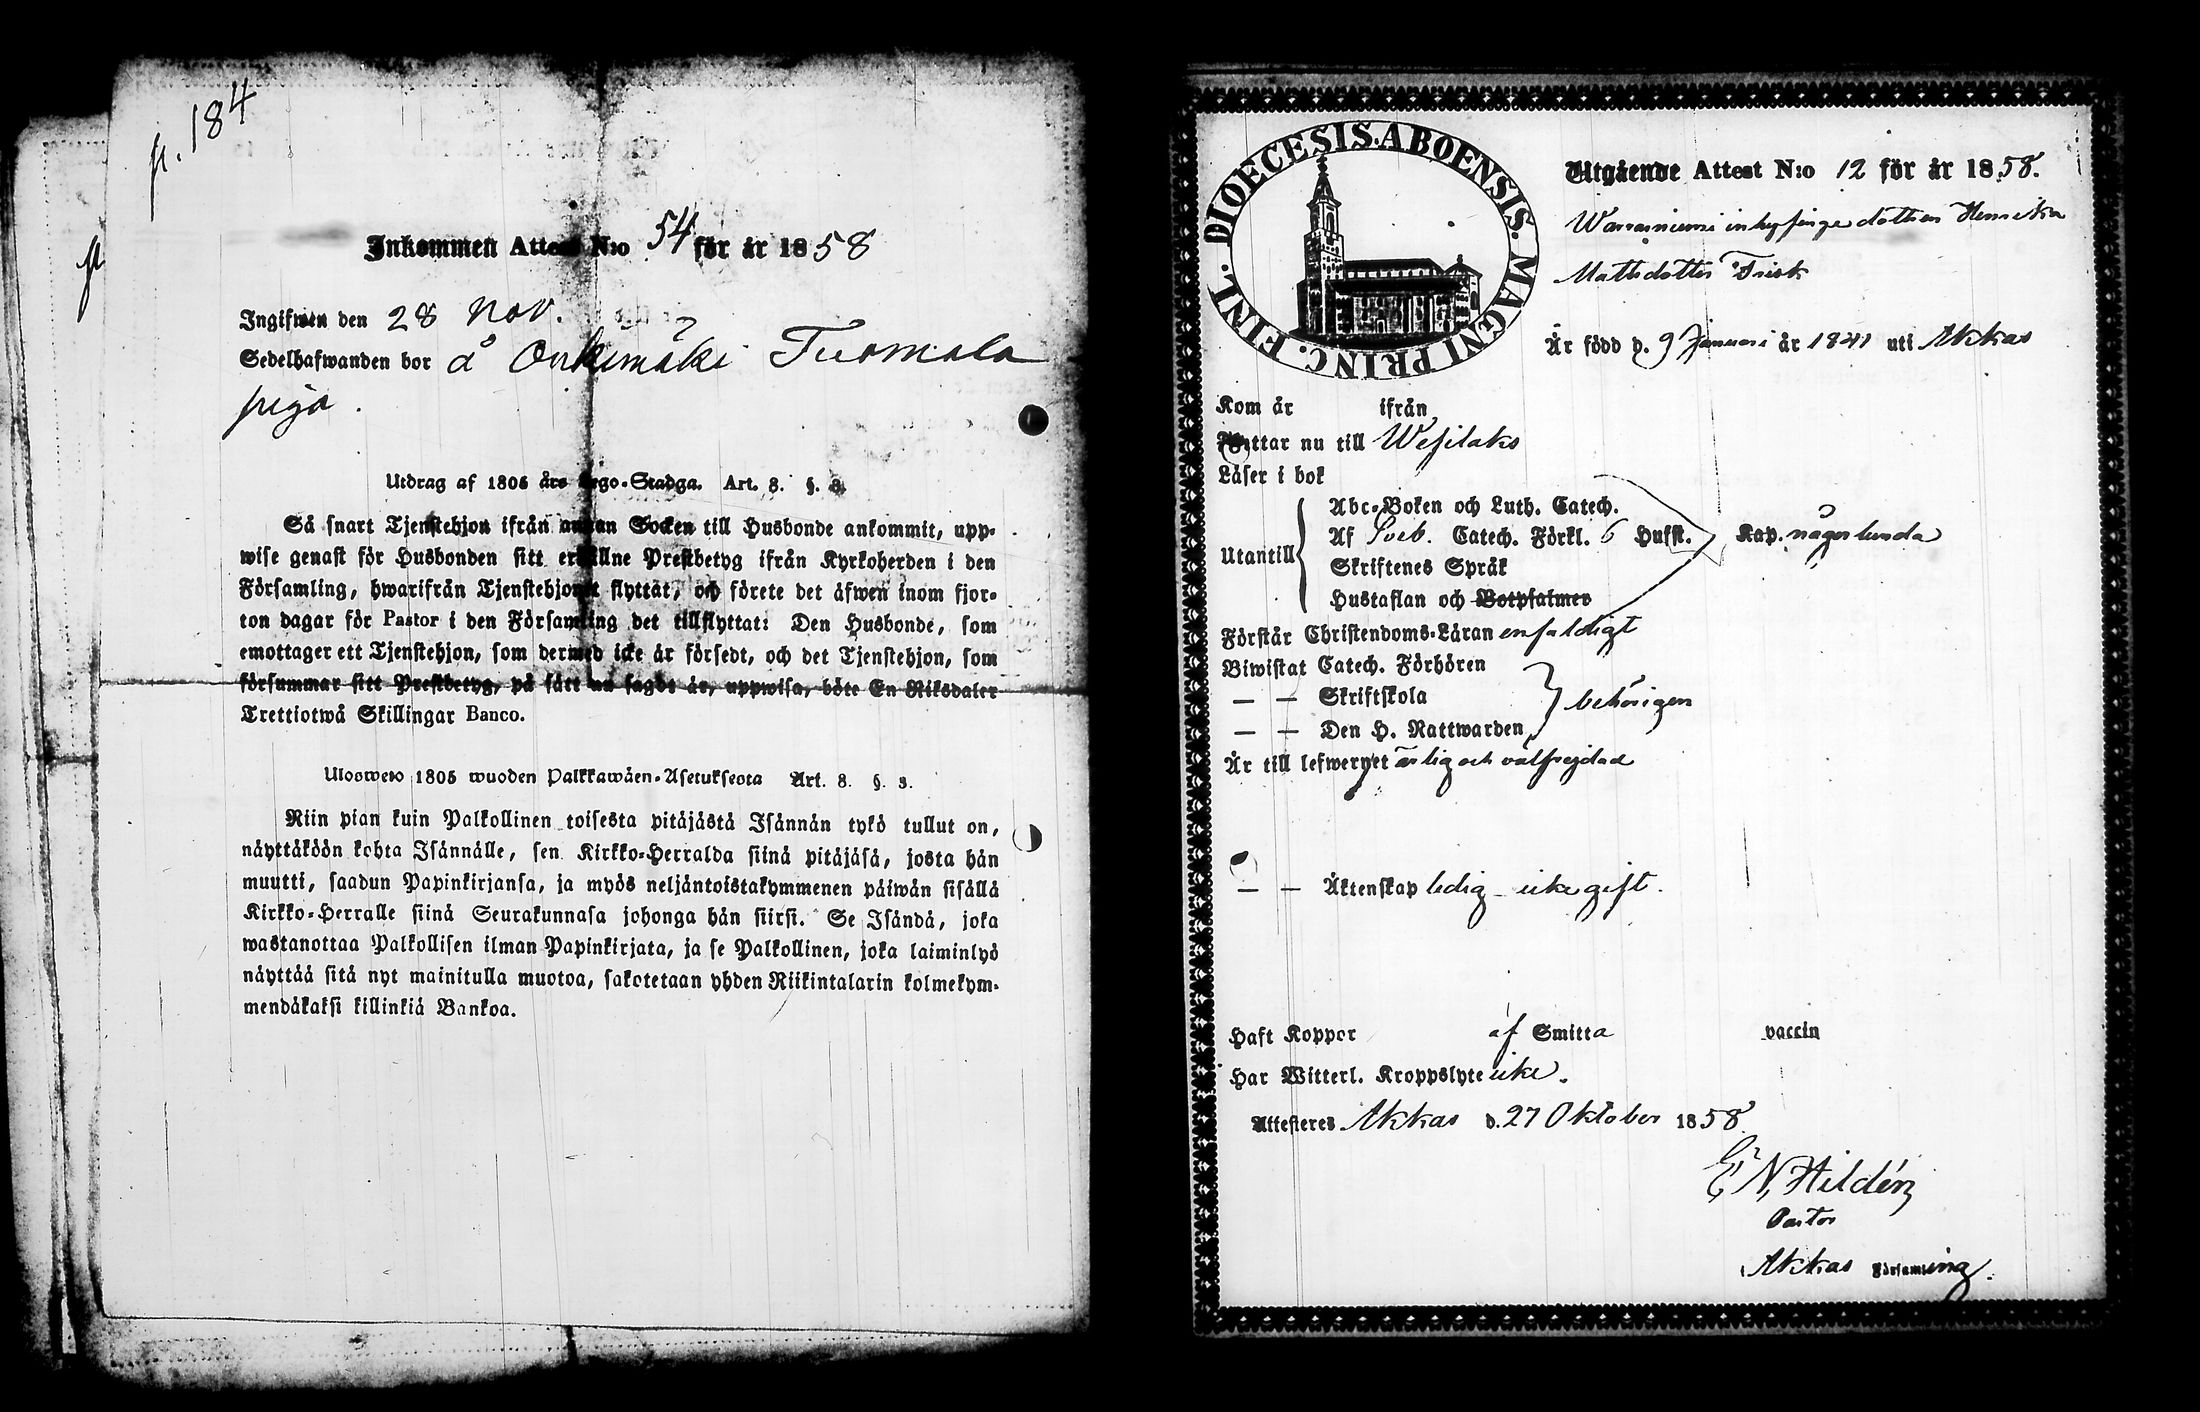 p. 184
Inkommen Attest N:o 54 för år 1858
Ingifwen den 28 Nov.
Sedelhafwanden bor å Onkemäki Tuomala
piga.
Utdrag af 1805 års Lego-Stadga. Art. 8. §. 3.
Så snart Tjenstehjon ifrån annan Socken till Husbonde ankommit, upp-
wise genast för Husbonden sitt erhållne Prestbetyg ifrån Kyrkoherden i den
Församling, hwarifrån Tjenstehjonet flyttat, och förete det äfwen inom fjor-
ton dagar för Pastor i den Församling det tillflyttat: Den Husbonde, som
emottager ett Tjenstehjon, som dermed icke är försedt, och det Tjenstehjon, som
försummar sitt Prestbetyg, på sätt nu sagdt är, uppwisa, böte En Riksdaler
Trettiotwå Skillingar Banco.
Ulosweto 1805 wuoden Palkkawäen-Asetuksesta Art. 8. §. 3.
Niin pian kuin Palkollinen toisesta pitäjästä Isännän tykö tullut on,
näyttäköön kohta Isännälle, sen Kirkko-Herralda siinä pitäjäsä, josta hän
muutti, saadun Papinkirjansa, ja myös neljäntoistakymmenen päiwän sisällä
Kirkko-Herralle siinä Seurakunnasa johonga hän siirsi. Se Isändä, joka
wastanottaa Palkollisen ilman Papinkirjata, ja se Palkollinen, joka laiminlyö
näyttää sitä nyt mainitulla muotoa, sakotetaan yhden Riikintalarin kolmekym-
mendäkaksi killinkiä Bankoa.
DIOECESIS. ABOENSIS. MAGNI PRINC. FINL.
Utgående Attest N:o 12 för år 1858.
Warrasniemi inhysinge dottren Henrika
Mattsdotter Frisk
Är född d. 9 Januari år 1841 uti Akkas
Kom år ifrån
Flyttar nu till Wesilaks
Läser i bok
Utantill
Abc-Boken och Luth. Catech.
Af Sveb. Catech. Förkl. 6 Hufst. Kap. någorlunda
Skriftenes Språk
Hustaflan och Botpsalmer
Förstår Christendoms-Läran enfaldigt
Biwistat Catech. Förhören
— — Skriftskola behörigen
— — Den H. Nattwarden
Är till lefwernet ärlig och välfrejdad
— — Äktenskap ledig – icke gift.
Haft Koppor af Smitta vaccin
Har Witterl. Kroppslyte icke.
Attesteres Akkas d. 27 Oktober 1858
E N Hildén
Pastor
i Akkas Församling.